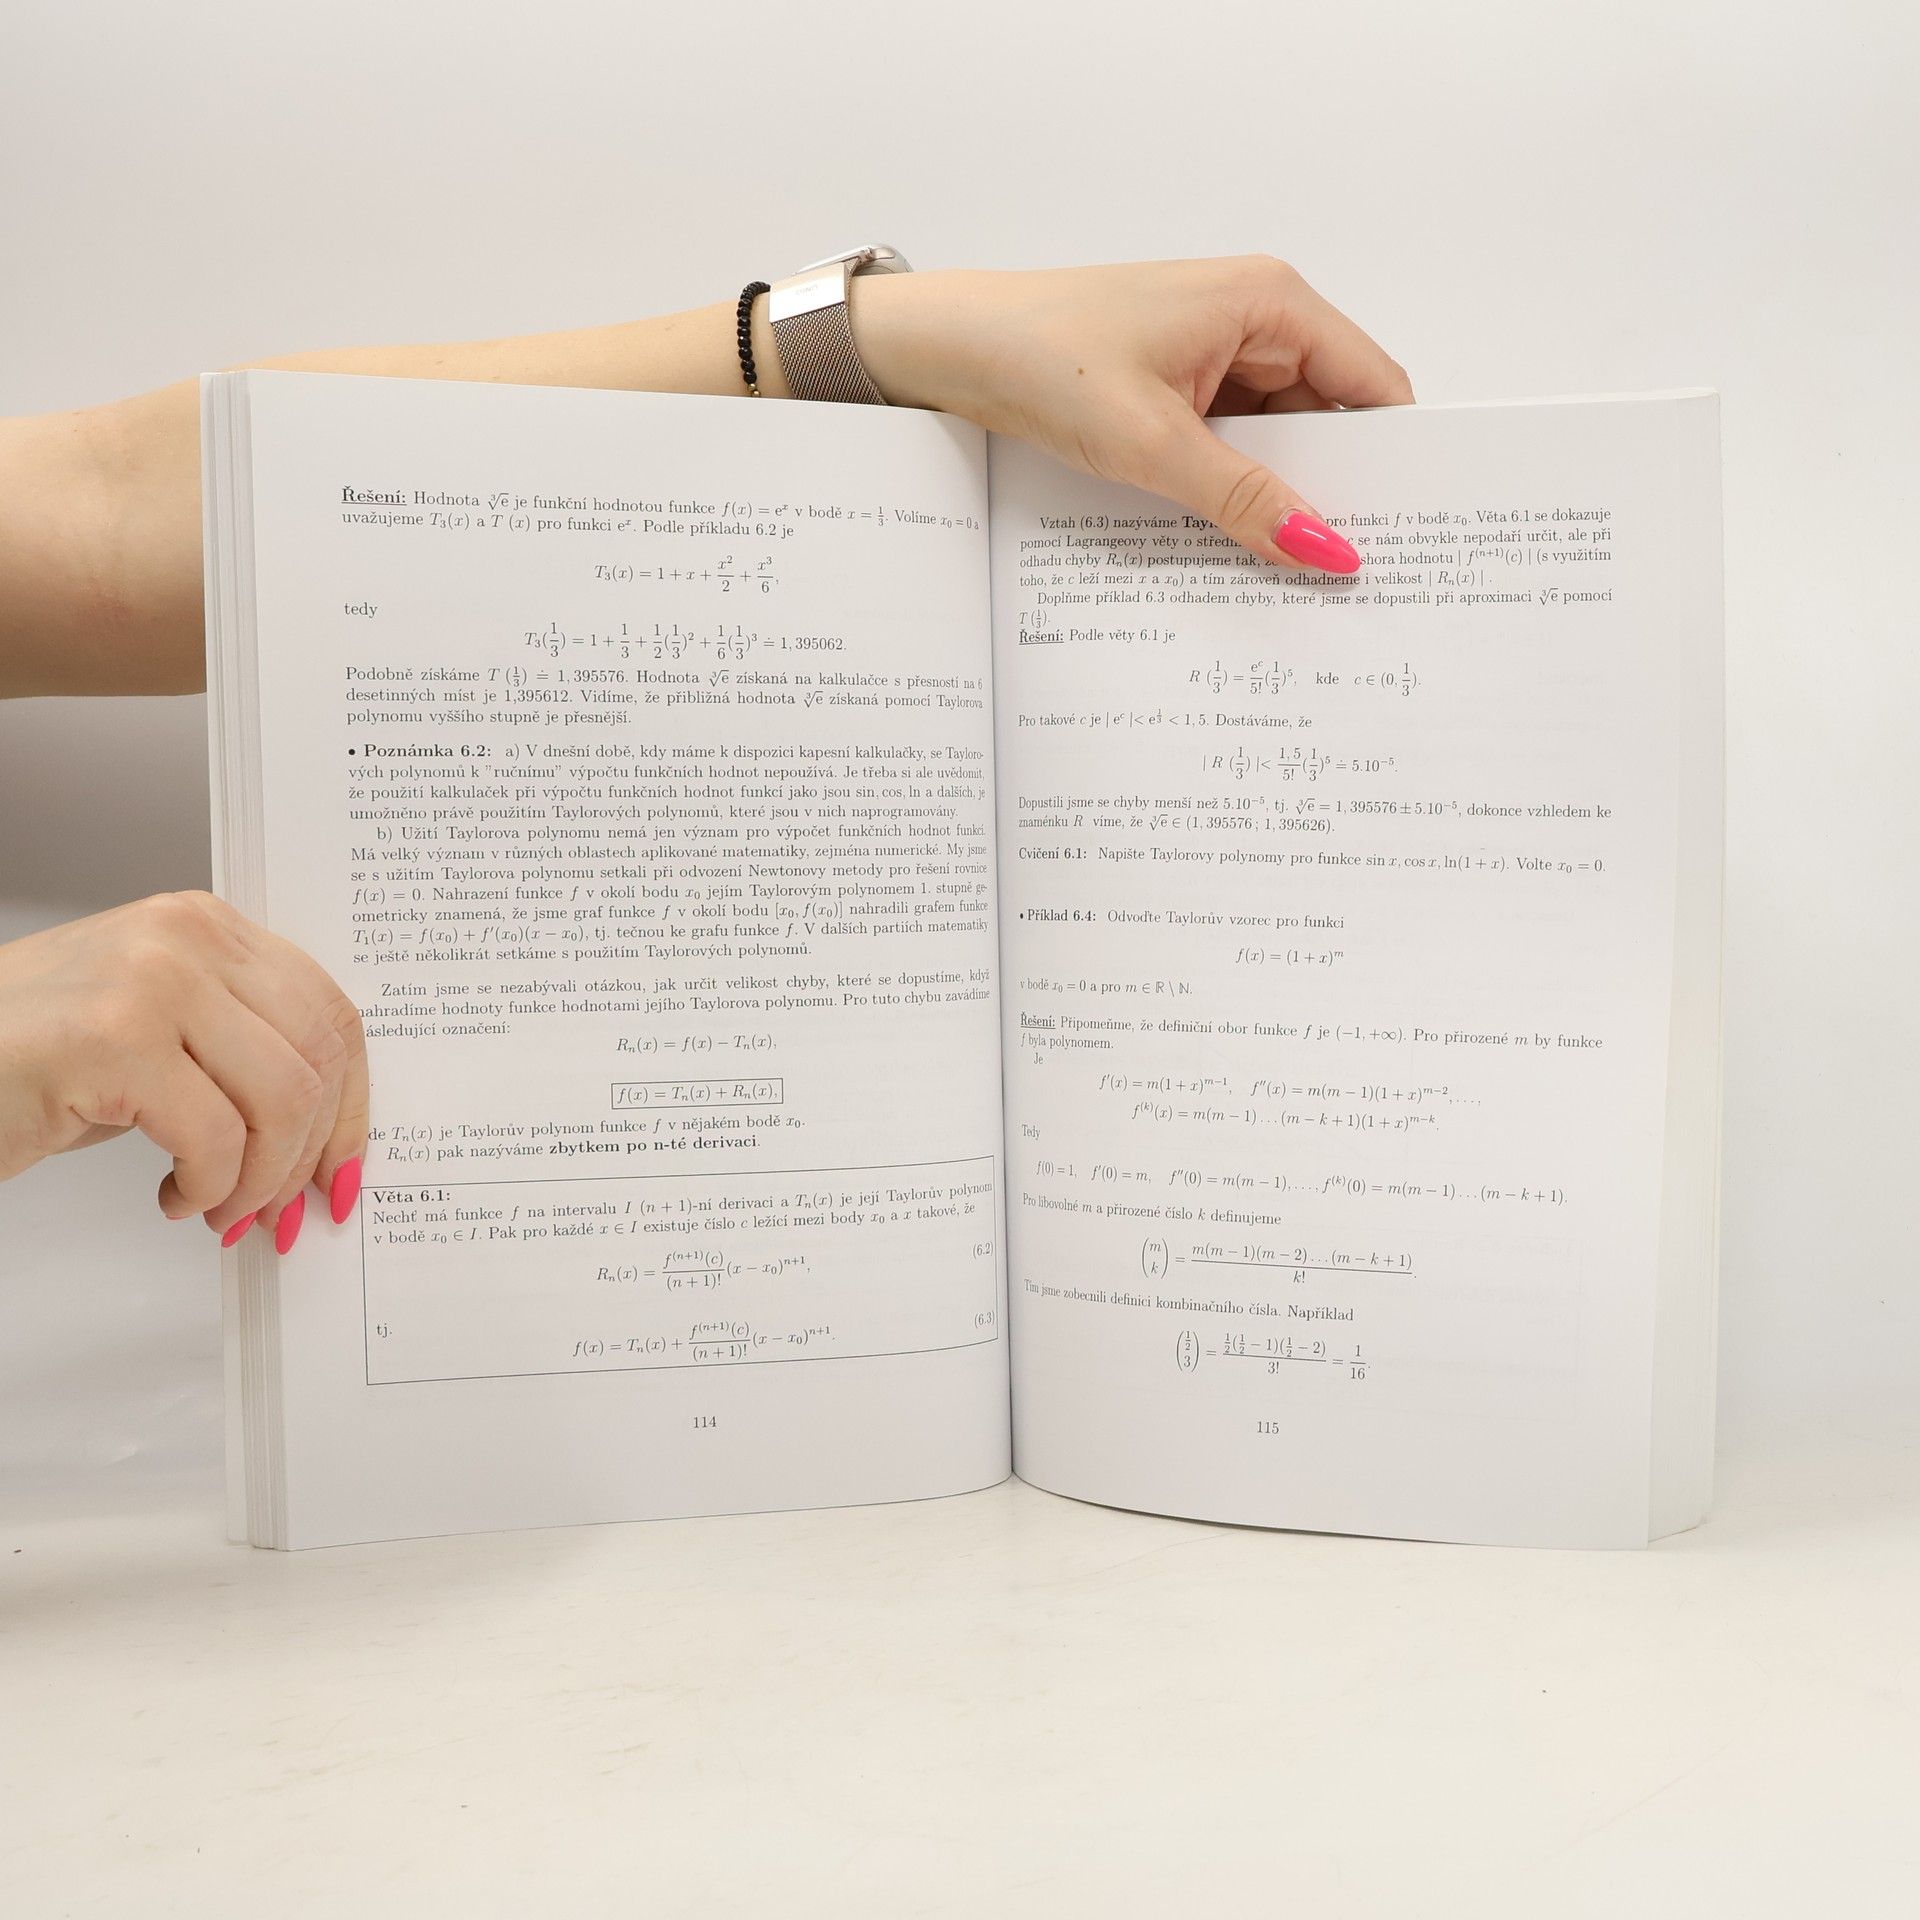 Řešení: Hodnota ∛e je funkční hodnotou funkce f(x) = eˣ v bodě x = 1/3. Volíme x₀ = 0 a
uvažujeme T₃(x) a T (x) pro funkci eˣ. Podle příkladu 6.2 je
T₃(x) = 1 + x + x²/2 + x³/6,
tedy
T₃(1/3) = 1 + 1/3 + 1/2(1/3)² + 1/6(1/3)³ ≐ 1, 395062.
Podobně získáme T (1/3) ≐ 1, 395576. Hodnota ∛e získaná na kalkulačce s přesností na 6
desetinných míst je 1,395612. Vidíme, že přibližná hodnota ∛e získaná pomocí Taylorova
polynomu vyššího stupně je přesnější.
• Poznámka 6.2: a) V dnešní době, kdy máme k dispozici kapesní kalkulačky, se Tayloro-
vých polynomů k "ručnímu" výpočtu funkčních hodnot nepoužívá. Je třeba si ale uvědomit,
že použití kalkulaček při výpočtu funkčních hodnot funkcí jako jsou sin, cos, ln a dalších, je
umožněno právě použitím Taylorových polynomů, které jsou v nich naprogramovány.
b) Užití Taylorova polynomu nemá jen význam pro výpočet funkčních hodnot funkcí.
Má velký význam v různých oblastech aplikované matematiky, zejména numerické. My jsme
se s užitím Taylorova polynomu setkali při odvození Newtonovy metody pro řešení rovnice
f(x) = 0. Nahrazení funkce f v okolí bodu x₀ jejím Taylorovým polynomem 1. stupně ge-
ometricky znamená, že jsme graf funkce f v okolí bodu [x₀, f(x₀)] nahradili grafem funkce
T₁(x) = f(x₀) + f′(x₀)(x − x₀), tj. tečnou ke grafu funkce f. V dalších partiích matematiky
se ještě několikrát setkáme s použitím Taylorových polynomů.
Zatím jsme se nezabývali otázkou, jak určit velikost chyby, které se dopustíme, když
nahradíme hodnoty funkce hodnotami jejího Taylorova polynomu. Pro tuto chybu zavádíme
ásledující označení:
Rₙ(x) = f(x) − Tₙ(x),
f(x) = Tₙ(x) + Rₙ(x),
de Tₙ(x) je Taylorův polynom funkce f v nějakém bodě x₀.
Rₙ(x) pak nazýváme zbytkem po n-té derivaci.
Věta 6.1:
Nechť má funkce f na intervalu I (n + 1)-ní derivaci a Tₙ(x) je její Taylorův polynom
v bodě x₀ ∈ I. Pak pro každé x ∈ I existuje číslo c ležící mezi body x₀ a x takové, že
Rₙ(x) = f⁽ⁿ⁺¹⁾(c)/(n + 1)! (x − x₀)ⁿ⁺¹, (6.2)
tj.
f(x) = Tₙ(x) + f⁽ⁿ⁺¹⁾(c)/(n + 1)! (x − x₀)ⁿ⁺¹. (6.3)
114
Vztah (6.3) nazýváme pro funkci f v bodě x₀. Věta 6.1 se dokazuje
pomocí Lagrangeovy věty o c se nám obvykle nepodaří určit, ale při
odhadu chyby Rₙ(x) postupujeme tak, shora hodnotu | f⁽ⁿ⁺¹⁾(c) | (s využitím
toho, že c leží mezi x a x₀) a tím zároveň odhadneme i velikost | Rₙ(x) | .
Doplňme příklad 6.3 odhadem chyby, které jsme se dopustili při aproximaci ∛e pomocí
T (1/3).
Řešení: Podle věty 6.1 je
R (1/3) = eᶜ/5! (1/3)⁵, kde c ∈ (0, 1/3).
Pro takové c je | eᶜ |< e^(1/3) < 1, 5. Dostáváme, že
| R (1/3) |< 1, 5/5! (1/3)⁵ ≐ 5.10⁻⁵.
Dopustili jsme se chyby menší než 5.10⁻⁵, tj. ∛e = 1, 395576 ± 5.10⁻⁵, dokonce vzhledem ke
znaménku R víme, že ∛e ∈ (1, 395576 ; 1, 395626).
Cvičení 6.1: Napište Taylorovy polynomy pro funkce sin x, cos x, ln(1 + x). Volte x₀ = 0.
• Příklad 6.4: Odvoďte Taylorův vzorec pro funkci
f(x) = (1 + x)ᵐ
v bodě x₀ = 0 a pro m ∈ ℝ \ ℕ.
Řešení: Připomeňme, že definiční obor funkce f je (−1, +∞). Pro přirozené m by funkce
f byla polynomem.
Je
f′(x) = m(1 + x)ᵐ⁻¹, f″(x) = m(m − 1)(1 + x)ᵐ⁻², . . . ,
f⁽ᵏ⁾(x) = m(m − 1) . . . (m − k + 1)(1 + x)ᵐ⁻ᵏ.
Tedy
f(0) = 1, f′(0) = m, f″(0) = m(m − 1), . . . , f⁽ᵏ⁾(0) = m(m − 1) . . . (m − k + 1).
Pro libovolné m a přirozené číslo k definujeme
(m k) = m(m − 1)(m − 2) . . . (m − k + 1)/k!.
Tím jsme zobecnili definici kombinačního čísla. Například
(1/2 3) = 1/2(1/2 − 1)(1/2 − 2)/3! = 1/16.
115